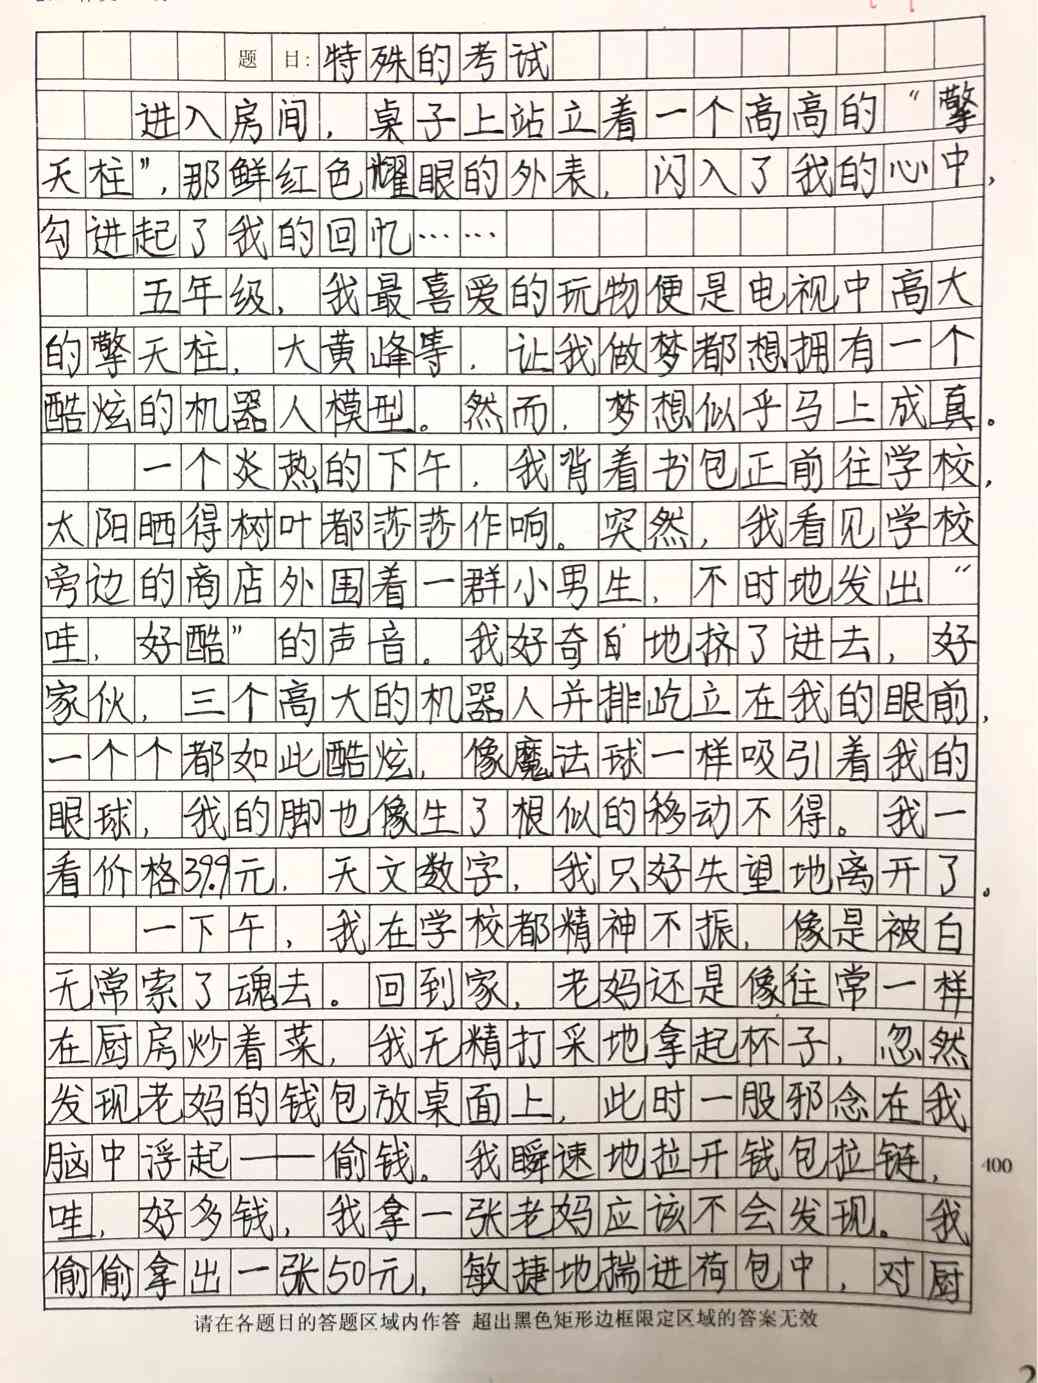 题目:特殊的考试
进入房间,桌子上站立着一个高高的“擎
天柱”,那鲜红色耀眼的外表,闪入了我的心中,
勾进起了我的回忆……
五年级,我最喜爱的玩物便是电视中高大
的擎天柱,大黄峰等,让我做梦都想拥有一个
酷炫的机器人模型。然而,梦想似乎马上成真。
一个炎热的下午,我背着书包正前往学校,
太阳晒得树叶都莎莎作响。突然,我看见学校
旁边的商店外围着一群小男生,不时地发出“
哇,好酷”的声音。我好奇的地挤了进去,好
家伙,三个高大的机器人并排屹立在我的眼前,
一个个都如此酷炫,像魔法球一样吸引着我的
眼球,我的脚也像生了根似的移动不得。我一
看价格39.9元,天文数字,我只好失望地离开了。
一下午,我在学校都精神不振,像是被白
无常索了魂去。回到家,老妈还是像往常一样
在厨房炒着菜,我无精打采地拿起杯子,忽然
发现老妈的钱包放桌面上,此时一股邪念在我
脑中浮起——偷钱。我瞬速地拉开钱包拉链,
哇,好多钱,我拿一张老妈应该不会发现。我
偷偷拿出一张50元,敏捷地揣进荷包中,对厨
400
请在各题目的答题区域内作答 超出黑色矩形边框限定区域的答案无效
2